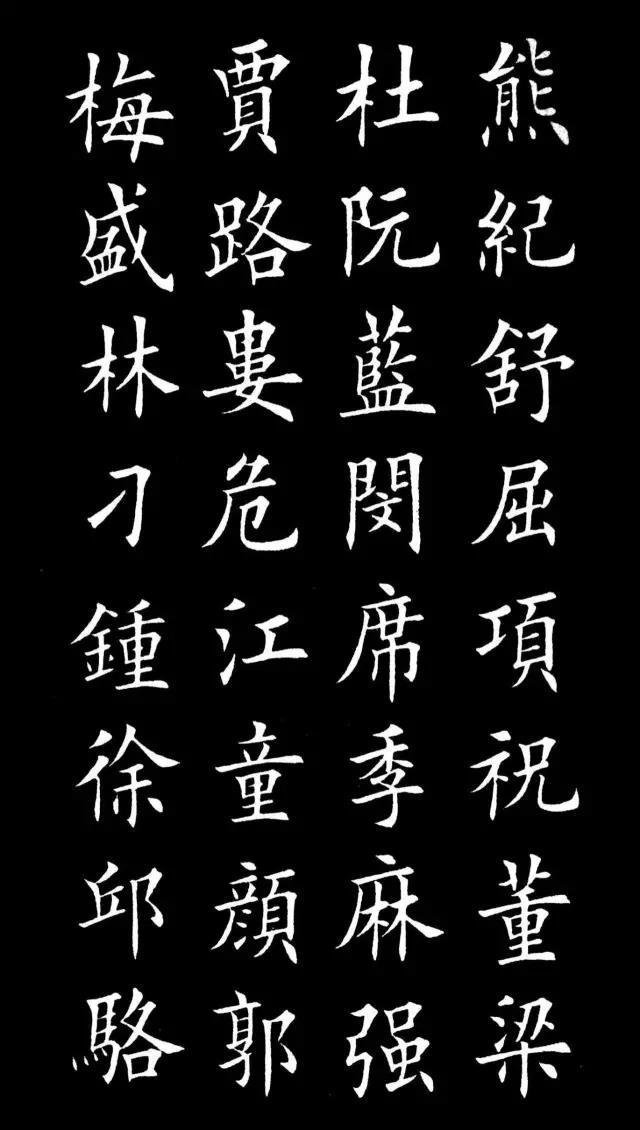 熊紀舒屈項祝董梁
杜阮藍閔席季麻强
賈路婁危江童顏郭
梅盛林刁鍾徐邱駱